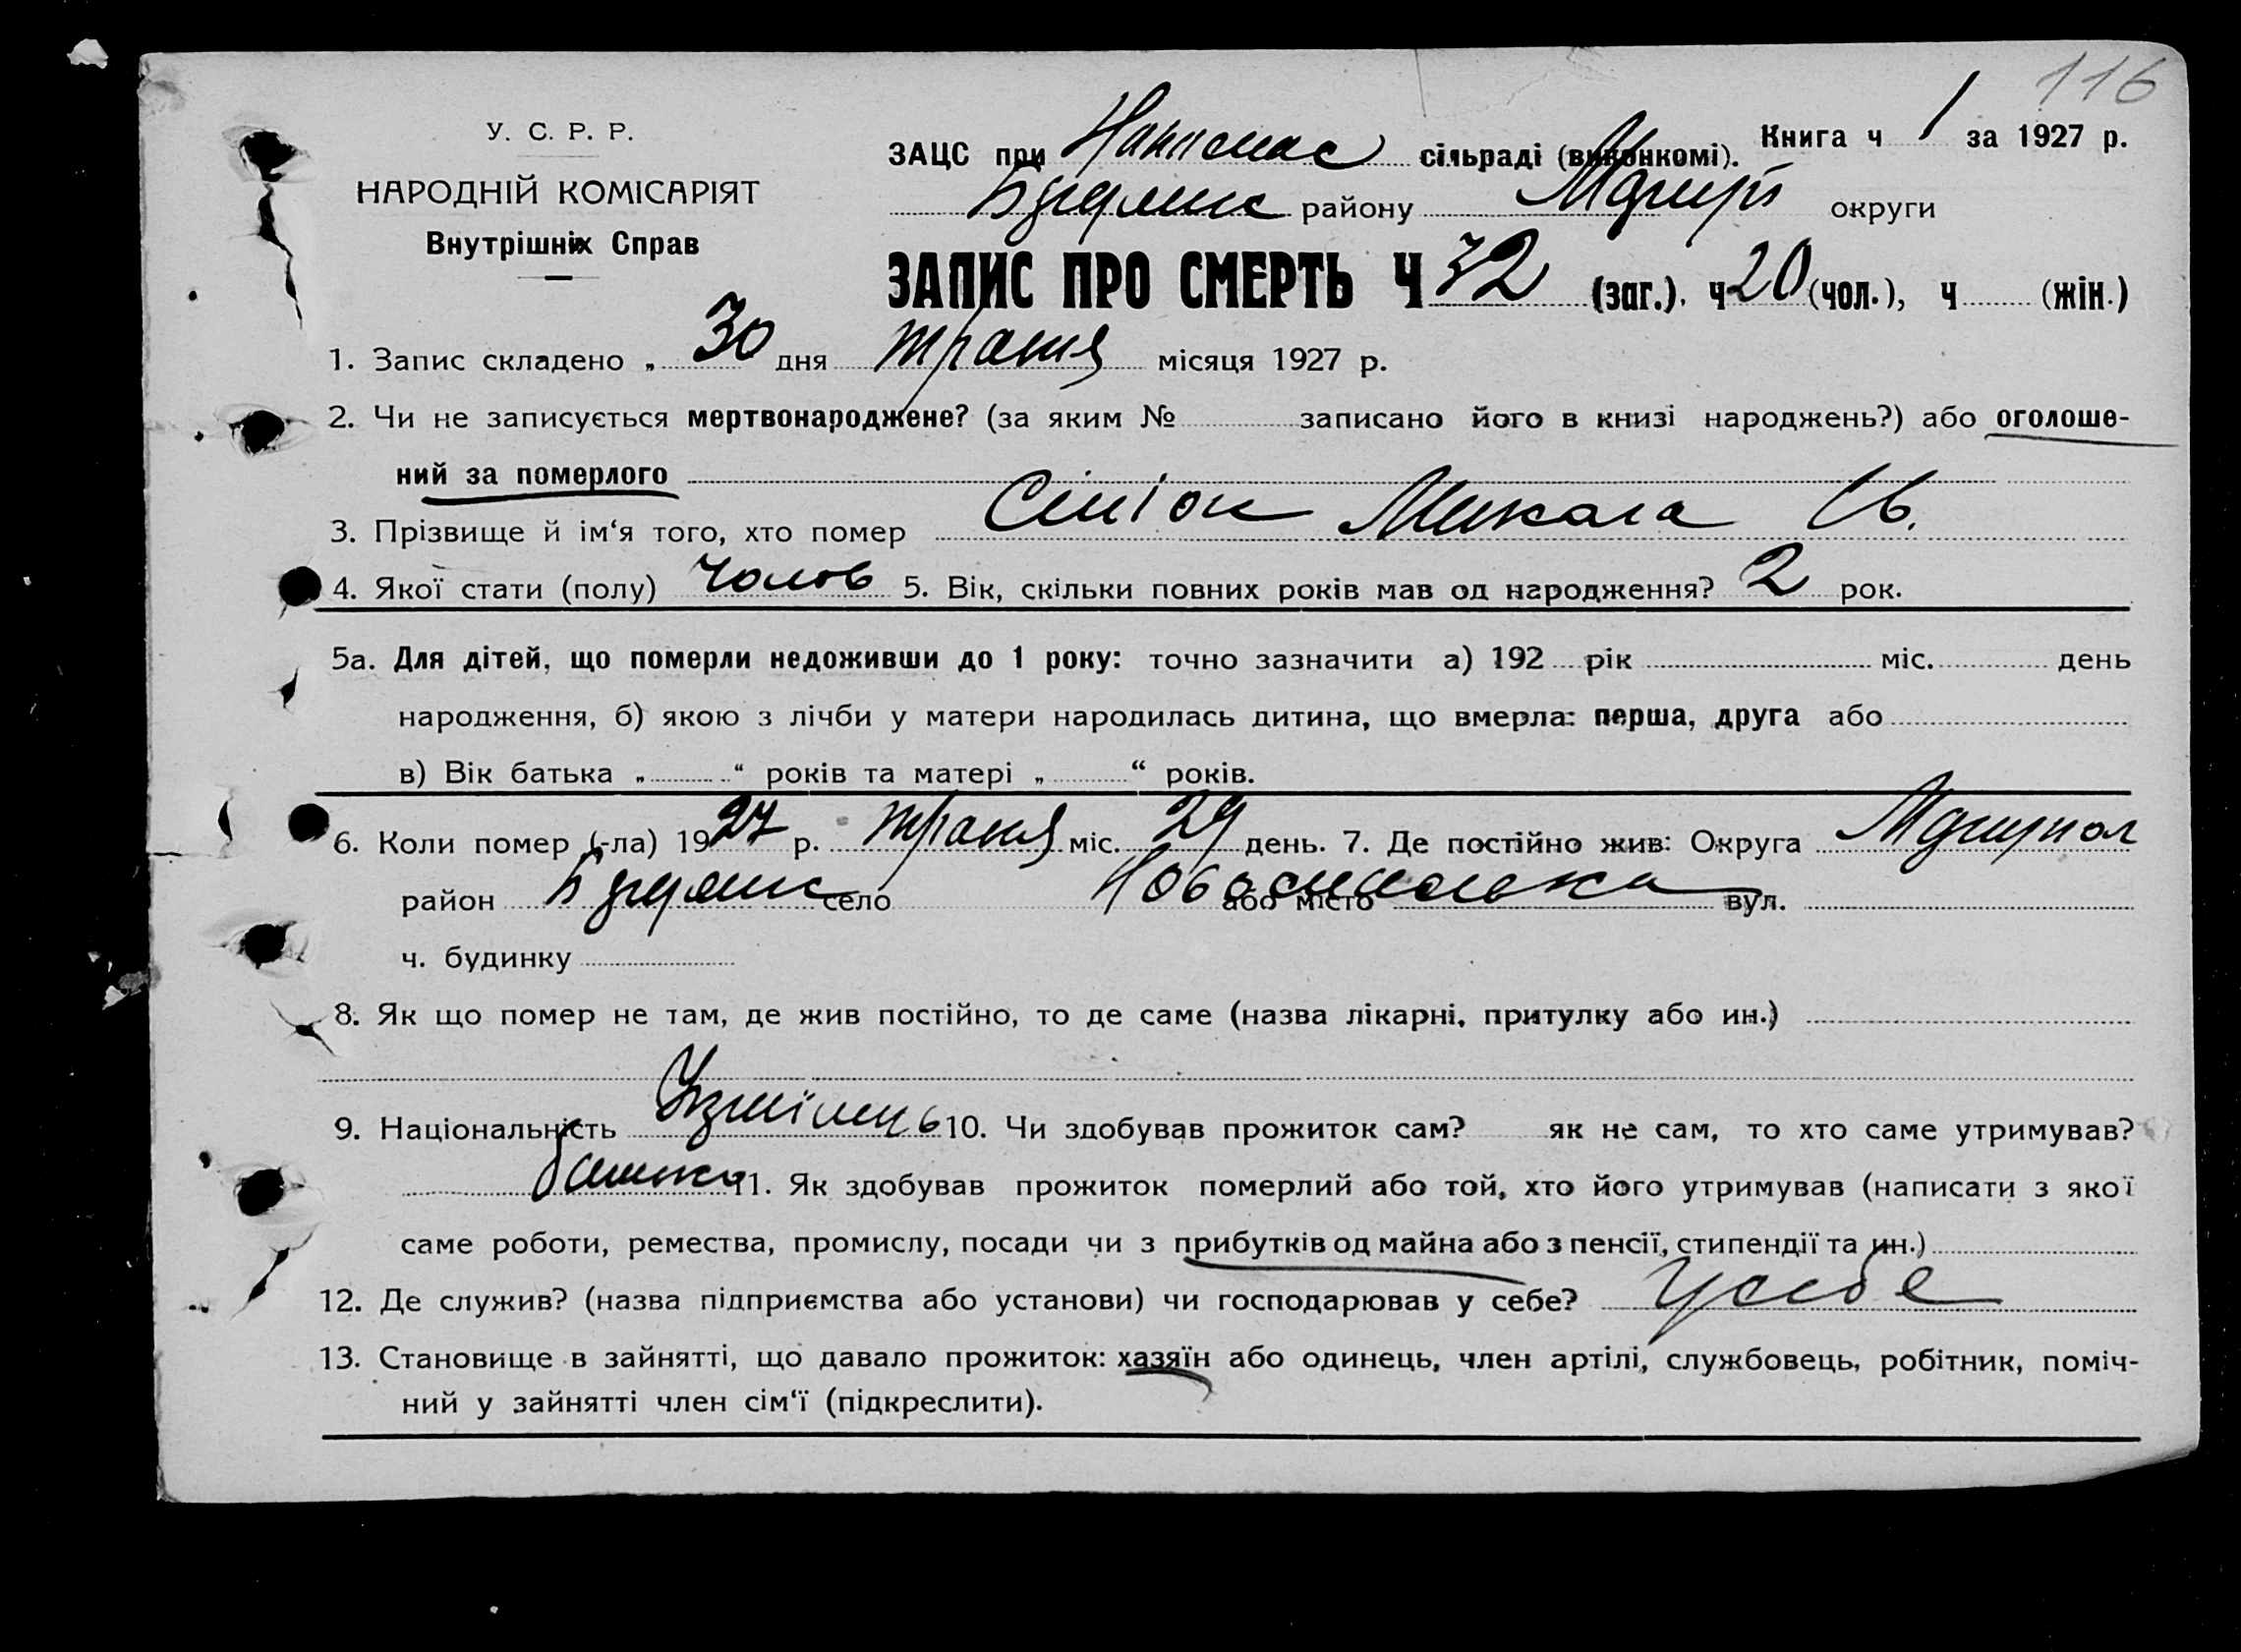 116
У. С. Р. Р.
НАРОДНІЙ КОМІСАРІЯТ
Внутрішніх Справ
Книга ч 1 за 1927 р.
ЗАЦС при сільраді (виконкомі).
району округи
ЗАПИС ПРО СМЕРТЬ Ч 32 (заг.). ч 20 (чол.), ч (жін.)
1. Запис складено „ 30 дня травня місяця 1927 р.
2. Чи не записується мертвонароджене? (за яким № записано його в книзі народжень?) або оголоше-
ний за померлого
3. Прізвище й ім‘я того, хто помер Микола Ів.
4. Якої стати (полу) Чолов 5. Вік, скільки повних років мав од народження? 2 рок.
5а. Для дітей, що померли недоживши до 1 року: точно зазначити а) 192 рік міс. день
народження, б) якою з лічби у матери народилась дитина, що вмерла: перша, друга або
в) Вік батька „ “ років та матері „ “ років.
6. Коли помер (-ла) 1927 р. травня міс. 29 день. 7. Де постійно жив: Округа
район село або місто вул.
ч. будинку
8. Як що помер не там, де жив постійно, то де саме (назва лікарні, притулку або ин.)
9. Національність 10. Чи здобував прожиток сам? як не сам, то хто саме утримував?
батько 11. Як здобував прожиток померлий або той, хто його утримував (написати з якої
саме роботи, ремества, промислу, посади чи з прибутків од майна або з пенсії, стипендії та ин.)
12. Де служив? (назва підприємства або установи) чи господарював у себе? у себе
13. Становище в зайнятті, що давало прожиток: хазяїн або одинець, член артілі, службовець, робітник, поміч-
ний у зайнятті член сім‘ї (підкреслити).